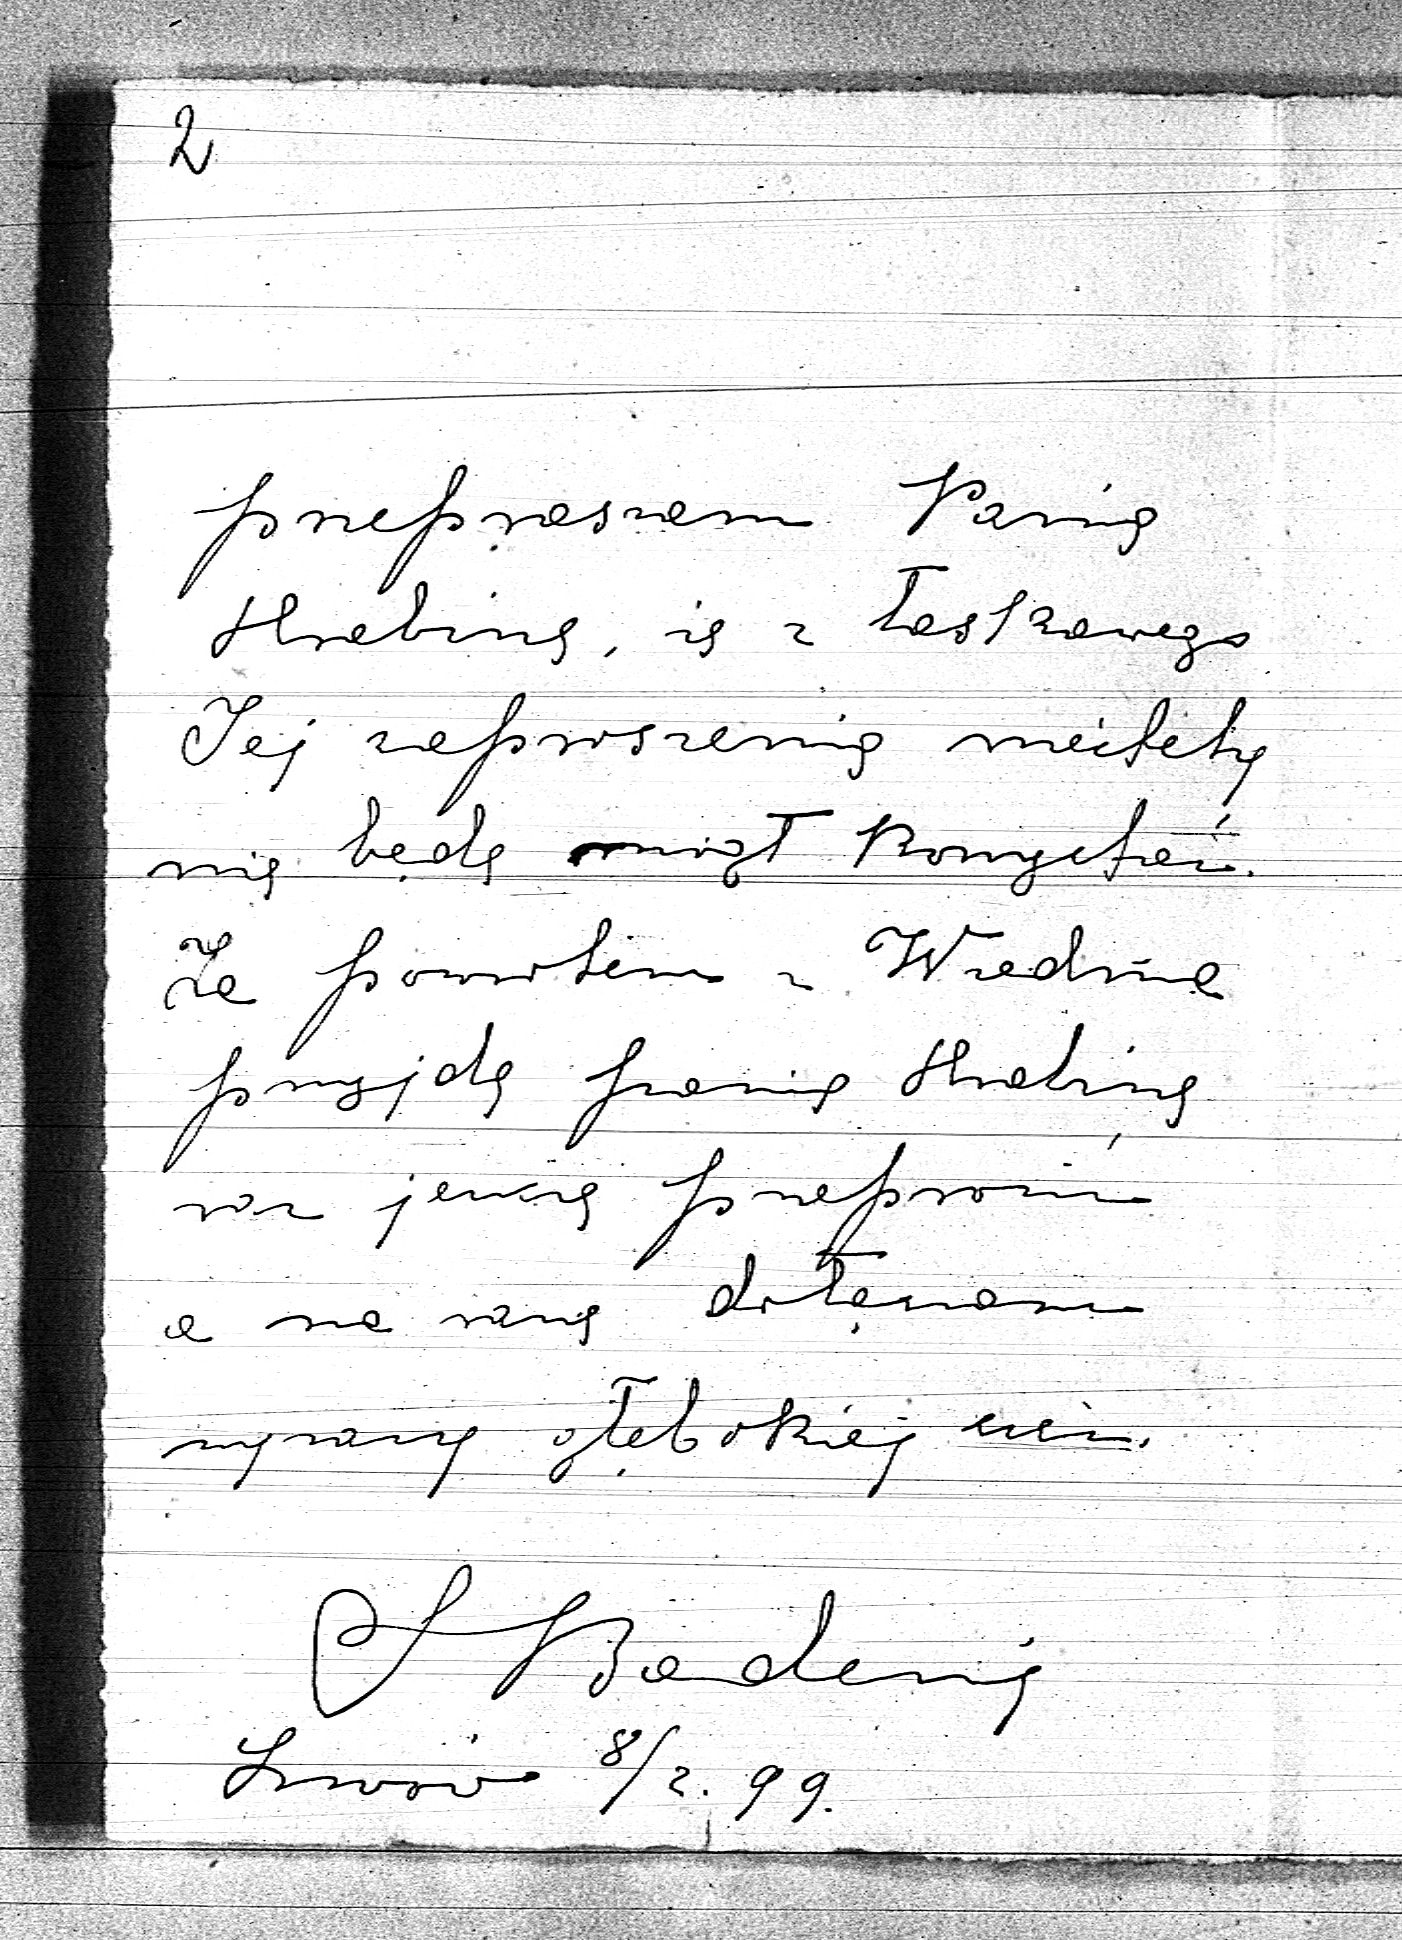 2
przepraszam Panią
Hrabinę, iż z łaskawego
Jej zaproszenia niestety
nie będę mógł korzystać.
Za powrotem z Wiednia
przyjdę panią Hrabinę
raz jeszcze przeprosić
a na razie dołączam
wyrazy głębokiej czci.
S Badeni
Lwów 8/2. 99.